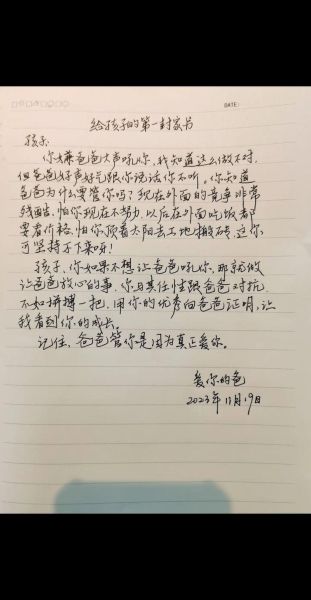 DATE:
给孩子的第一封家书
孩子:
你嫌爸爸大声吼你,我知道这么做不对,
但爸爸好声好气跟你说话你不听。你知道
爸爸为什么要管你吗?现在外面的竞争非常
残酷,怕你现在不努力,以后在外面吃饭都
要看价格,怕你顶着太阳去工地搬砖,这你
可坚持不下来呀!
孩子,你如果不想让爸爸吼你,那就做
让爸爸放心的事,你与其任性跟爸爸对抗,
不如拼搏一把,用你的优秀向爸爸证明,让
我看到你的成长。
记住,爸爸管你是因为真正爱你。
爱你的爸
2023年11月19日